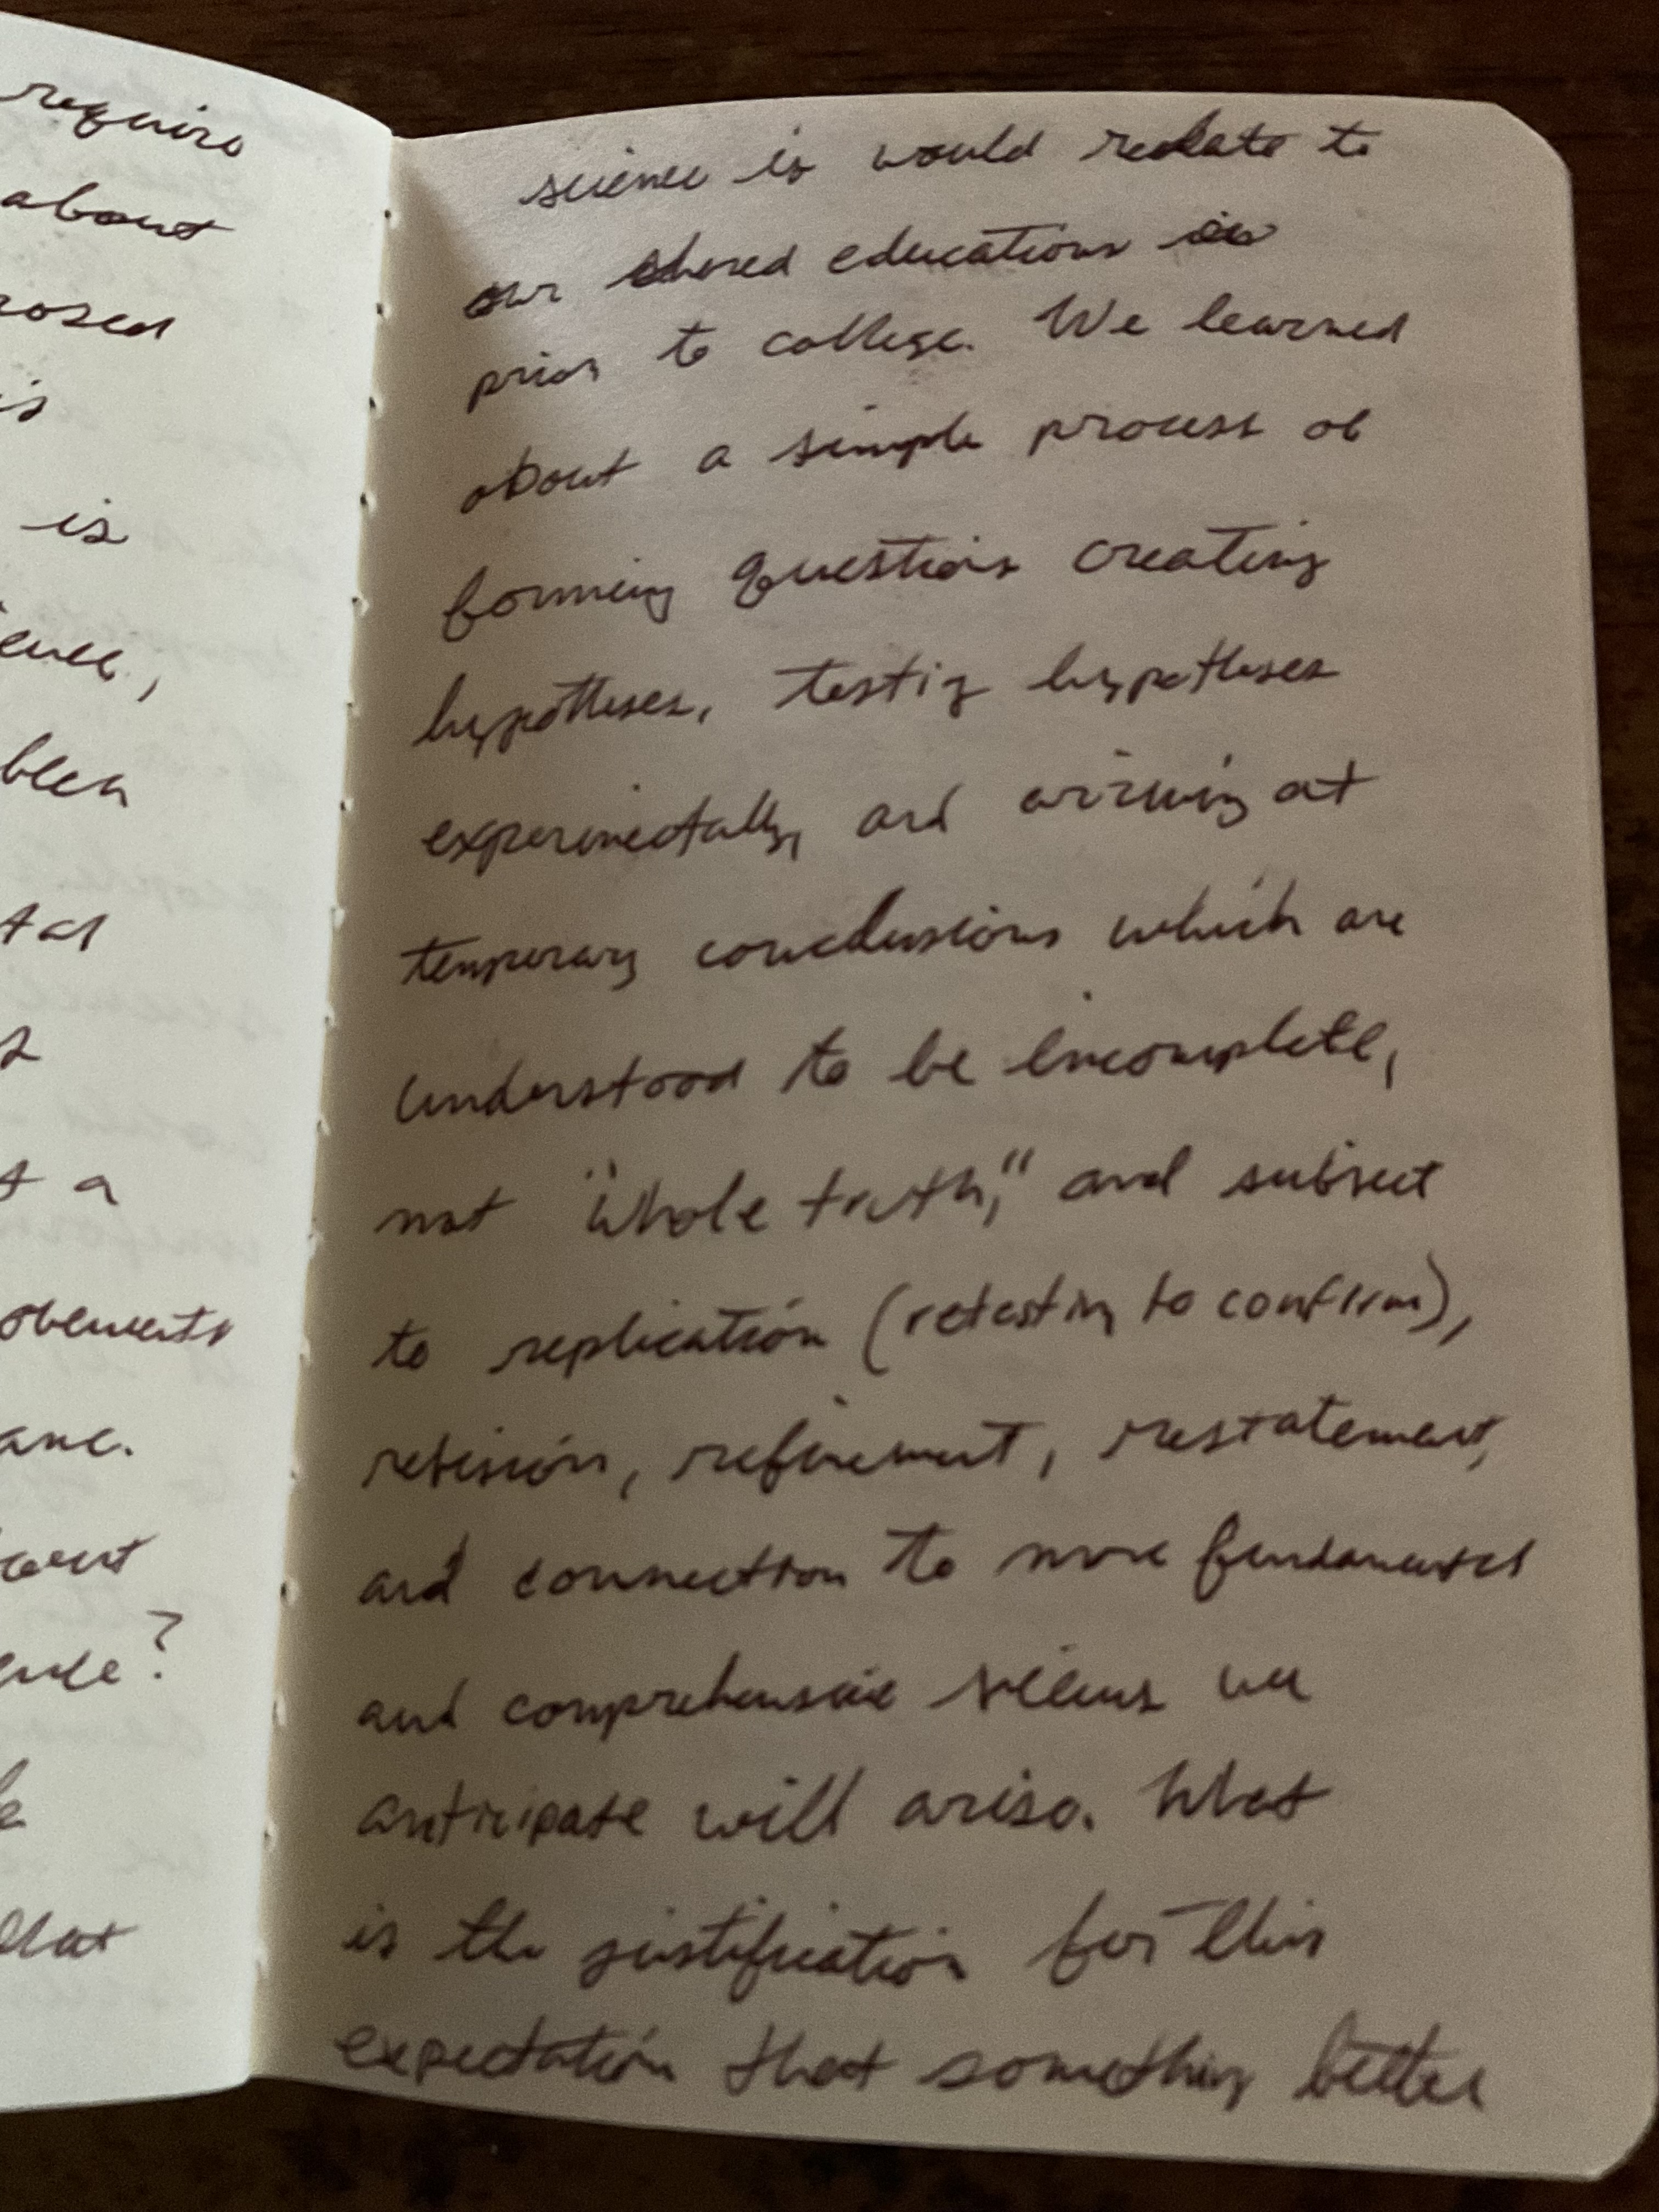 require
about
is
is
been
t a
that
science is would relate to
our shared educations in
prior to college. We learned
about a simple process of
forming questions creating
hypotheses, testing hypotheses
experimentally, and arriving at
temporary conclusions which are
understood to be incomplete,
not "whole truth," and subject
to replication (retesting to confirm),
revision, refinement, restatement,
and connection to more fundamental
and comprehensive we
anticipate will arise. What
is the justification for this
expectation that something better